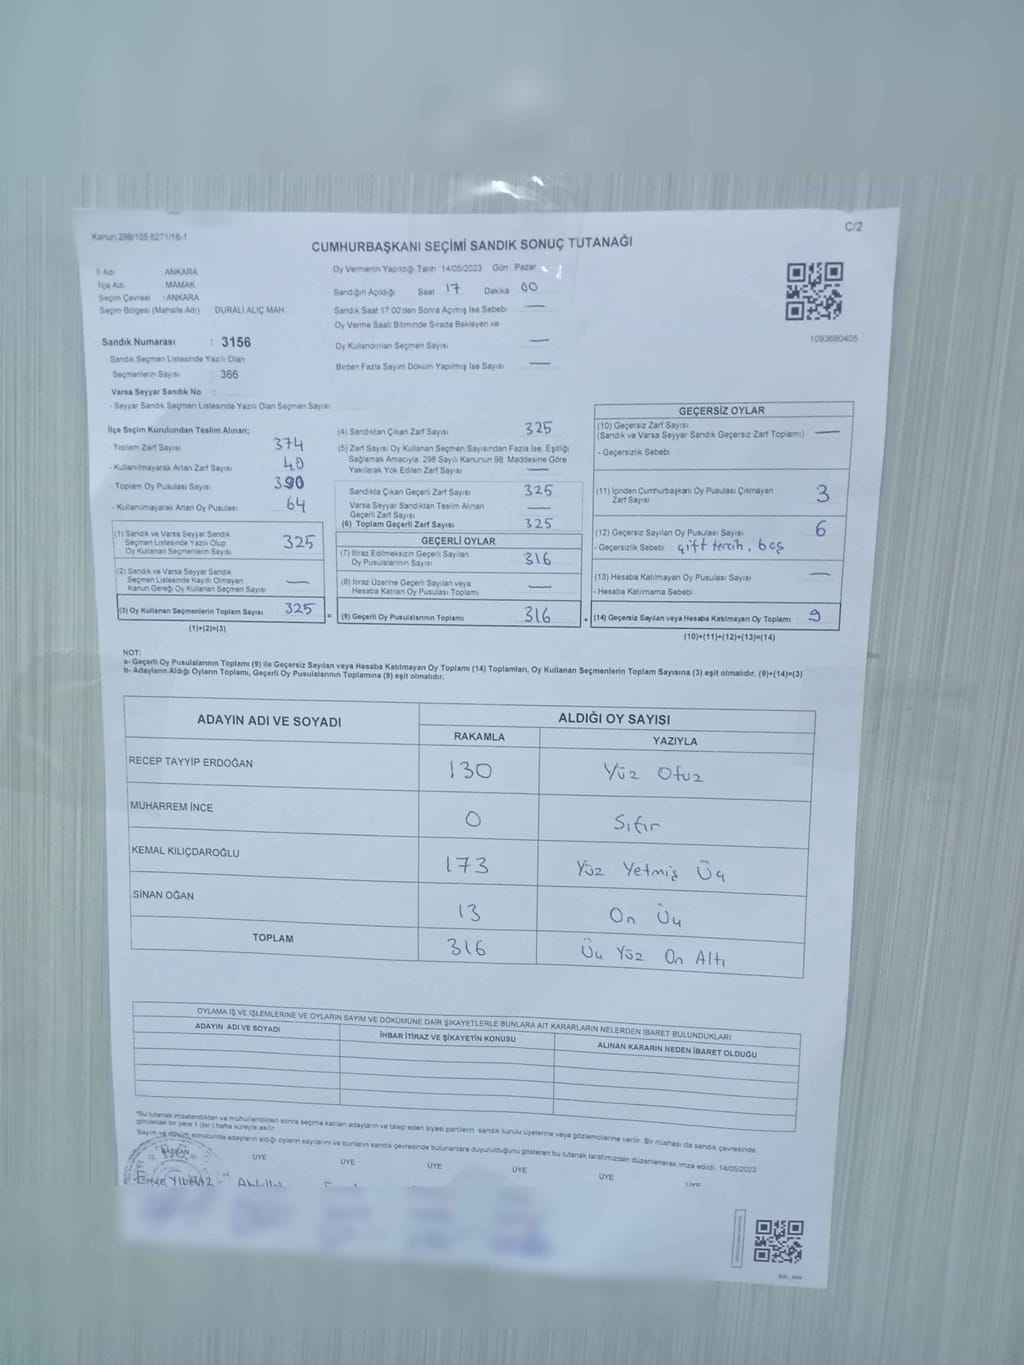 Kanun 298/105 6271/18-1
C/2
CUMHURBAŞKANI SEÇİMİ SANDIK SONUÇ TUTANAĞI
İl Adı ANKARA
İlçe Adı MAMAK
Seçim Çevresi : ANKARA
Seçim Bölgesi (Mahalle Adı) DURALİ ALIÇ MAH
Sandık Numarası : 3156
Sandık Seçmen Listesinde Yazılı Olan
Seçmenlerin Sayısı 366
Varsa Seyyar Sandık No :
- Seyyar Sandık Seçmen Listesinde Yazılı Olan Seçmen Sayısı
Oy Vermenin Yapıldığı Tarih 14/05/2023 Gün Pazar
Sandığın Açıldığı Saat 17 Dakika 00
Sandık Saat 17:00'den Sonra Açımış İse Sebebi —
Oy Verme Saati Bitiminde Sırada Bekleyen ve
Oy Kullandırılan Seçmen Sayısı —
Birden Fazla Sayım Döküm Yapılmış İse Sayısı —
1093680405
İlçe Seçim Kurulundan Teslim Alınan;
- Toplam Zarf Sayısı 374
- Kullanılmayarak Artan Zarf Sayısı 40
- Toplam Oy Pusulası Sayısı 390
- Kullanılmayarak Artan Oy Pusulası 64
(1) Sandık ve Varsa Seyyar Sandık
Seçmen Listesinde Yazılı Olup
Oy Kullanan Seçmenlerin Sayısı 325
(2) Sandık ve Varsa Seyyar Sandık
Seçmen Listesinde Kayıtlı Olmayan
Kanun Gereği Oy Kullanan Seçmen Sayısı —
(3) Oy Kullanan Seçmenlerin Toplam Sayısı 325
(1)+(2)=(3)
(4) Sandıktan Çıkan Zarf Sayısı 325
(5) Zarf Sayısı Oy Kullanan Seçmen Sayısından Fazla İse, Eşitliği
Sağlamak Amacıyla, 298 Sayılı Kanunun 98. Maddesine Göre
Yakılarak Yok Edilen Zarf Sayısı —
Sandıkta Çıkan Geçerli Zarf Sayısı 325
Varsa Seyyar Sandıktan Teslim Alınan
Geçerli Zarf Sayısı —
(6) Toplam Geçerli Zarf Sayısı 325
GEÇERLİ OYLAR
(7) İtiraz Edilmeksizin Geçerli Sayılan
Oy Pusulalarının Sayısı 316
(8) İtiraz Üzerine Geçerli Sayılan veya
Hesaba Katılan Oy Pusulası Toplamı —
= (9) Geçerli Oy Pusulalarının Toplamı 316
GEÇERSİZ OYLAR
(10) Geçersiz Zarf Sayısı
(Sandık ve Varsa Seyyar Sandık Geçersiz Zarf Toplamı) —
- Geçersizlik Sebebi
(11) İçinden Cumhurbaşkanı Oy Pusulası Çıkmayan
Zarf Sayısı 3
(12) Geçersiz Sayılan Oy Pusulası Sayısı 6
- Geçersizlik Sebebi çift tercih, boş
(13) Hesaba Katılmayan Oy Pusulası Sayısı —
- Hesaba Katılmama Sebebi
+ (14) Geçersiz Sayılan veya Hesaba Katılmayan Oy Toplamı 9
(10)+(11)+(12)+(13)=(14)
NOT:
a- Geçerli Oy Pusulalarının Toplamı (9) ile Geçersiz Sayılan veya Hesaba Katılmayan Oy Toplamı (14) Toplamları, Oy Kullanan Seçmenlerin Toplam Sayısına (3) eşit olmalıdır. (9)+(14)=(3)
b- Adayların Aldığı Oyların Toplamı, Geçerli Oy Pusulalarının Toplamına (9) eşit olmalıdır.
ADAYIN ADI VE SOYADI ALDIĞI OY SAYISI
RAKAMLA YAZIYLA
RECEP TAYYİP ERDOĞAN 130 Yüz Otuz
MUHARREM İNCE 0 Sıfır
KEMAL KILIÇDAROĞLU 173 Yüz Yetmiş Üç
SİNAN OĞAN 13 On Üç
TOPLAM 316 Üç Yüz On Altı
OYLAMA İŞ VE İŞLEMLERİNE VE OYLARIN SAYIM VE DÖKÜMÜNE DAİR ŞİKAYETLERLE BUNLARA AİT KARARLARIN NELERDEN İBARET BULUNDUKLARI
ADAYIN ADI VE SOYADI İHBAR İTİRAZ VE ŞİKAYETİN KONUSU ALINAN KARARIN NEDEN İBARET OLDUĞU
*Bu tutanak imzalandıktan ve mühürlendikten sonra seçime katılan adayların ve talep eden siyasi partilerin sandık kurulu üyelerine veya gözlemcilerine verilir. Bir nüshası da sandık çevresinde
görülecek bir yere 1 (bir) hafta süreyle asılır.
Sayım ve döküm sonucunda adayların aldığı oyların sayılarını ve bunların sandık çevresinde bulunanlara duyurulduğunu gösteren bu tutanak tarafımızdan düzenlenerek imza edildi. 14/05/2023
BAŞKAN ÜYE ÜYE ÜYE ÜYE ÜYE ÜYE
YILMAZ